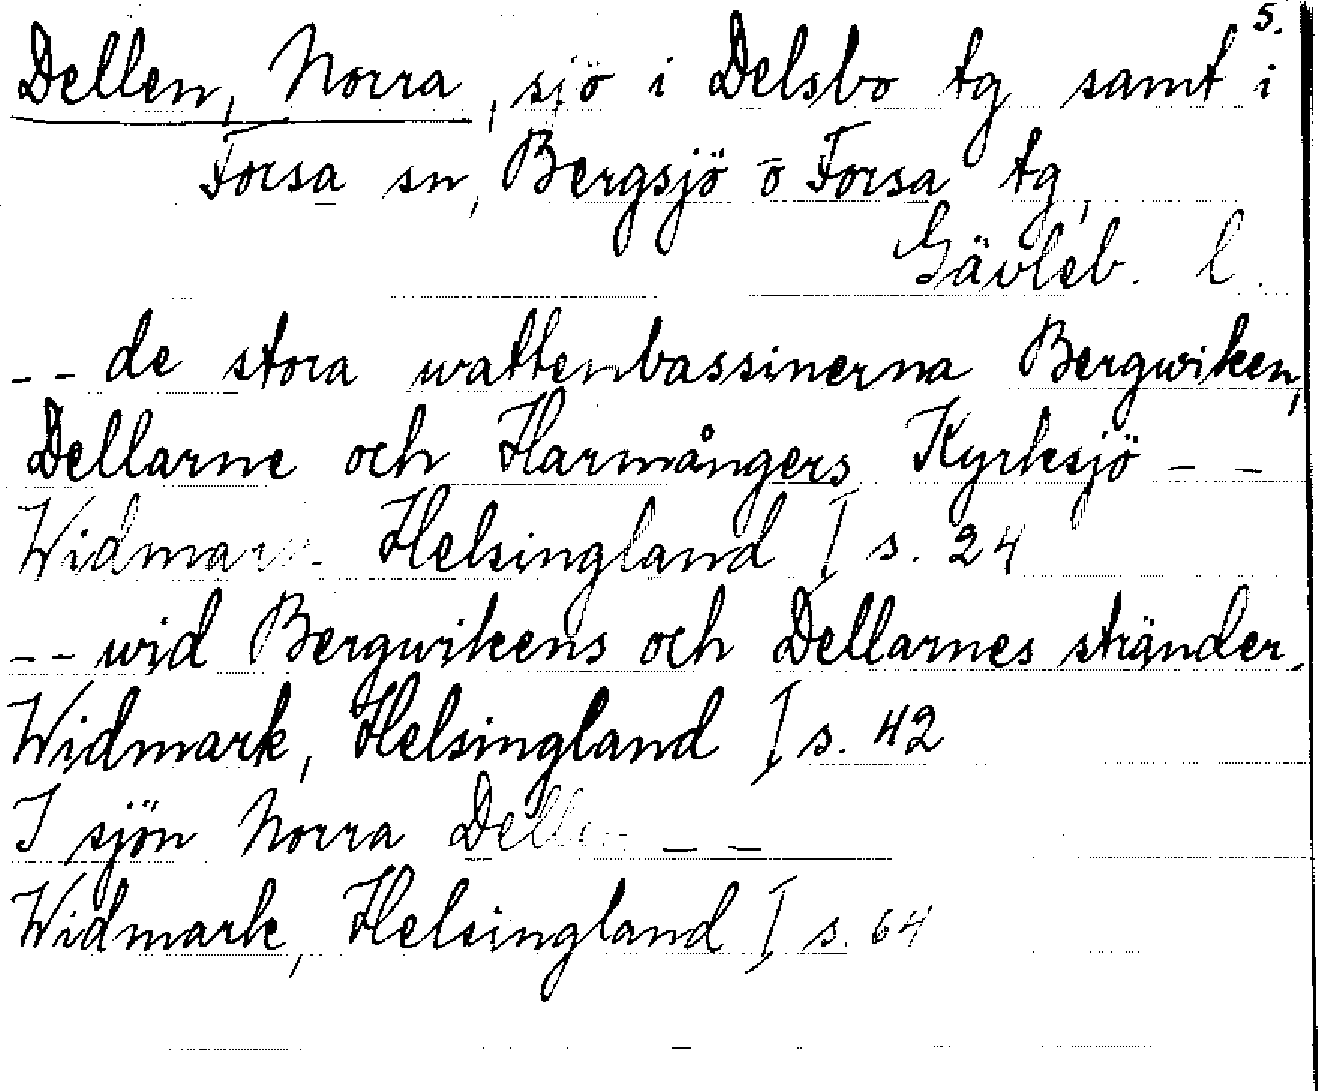 5.
Dellen, Norra, sjö i Delsbo tg samt i
Forsa sn, Bergsjö o Forsa tg,
Gävleb. l.
-- de stora wattenbassinerna Bergwiken,
Dellarne och Harmångers Kyrksjö --
Widmark Helsingland I s. 24
-- wid Bergwikens och Dellarnes stränder.
Widmark, Helsingland I s. 42
I sjön Norra Dellen --
Widmark, Helsingland I s. 64